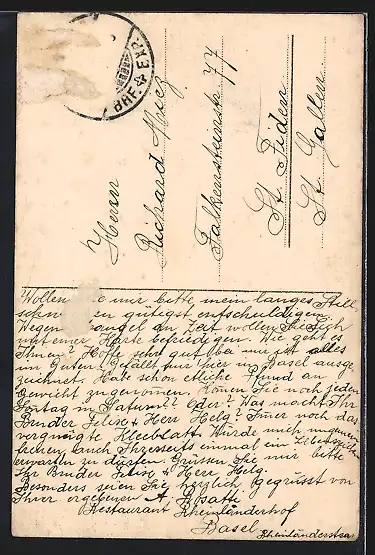 BRF. EXP.
Herrn
Richard
Falkensteinstr 77
St. Fiden
St. Gallen
Wollen Sie mir bitte mein langes Still
schweigen gütigst entschuldigen
Wegen Mangel an Zeit wollen Sie Sich
mit einer Karte befriedigen. Wie geht es
Ihnen? Hoffe sehr gut bei mir ist alles
im Guten. Gefällt mir hier in Basel ausge
zeichnet. Habe schon etliche Pfund an
Gewicht zugenomen. Gehen Sie noch jeden
Sontag in Saturn? Oder? Was macht Ihr
Bruder Felix & Herr Helg? Imer noch das
vergnügte Kleeblatt. Würde mich ungemein
freuen auch Ihrerseits einmal ein Lebenszeichen
erwarten zu dürfen. Grüssen Sie mir bitte
Ihr Bruder Felix & Herr Helg.
Besonders seien Sie herzlich gegrüsst von
Ihrer ergebenen A. Rosatti
Restaurant Rheinländerhof
Basel Rheinländerstr